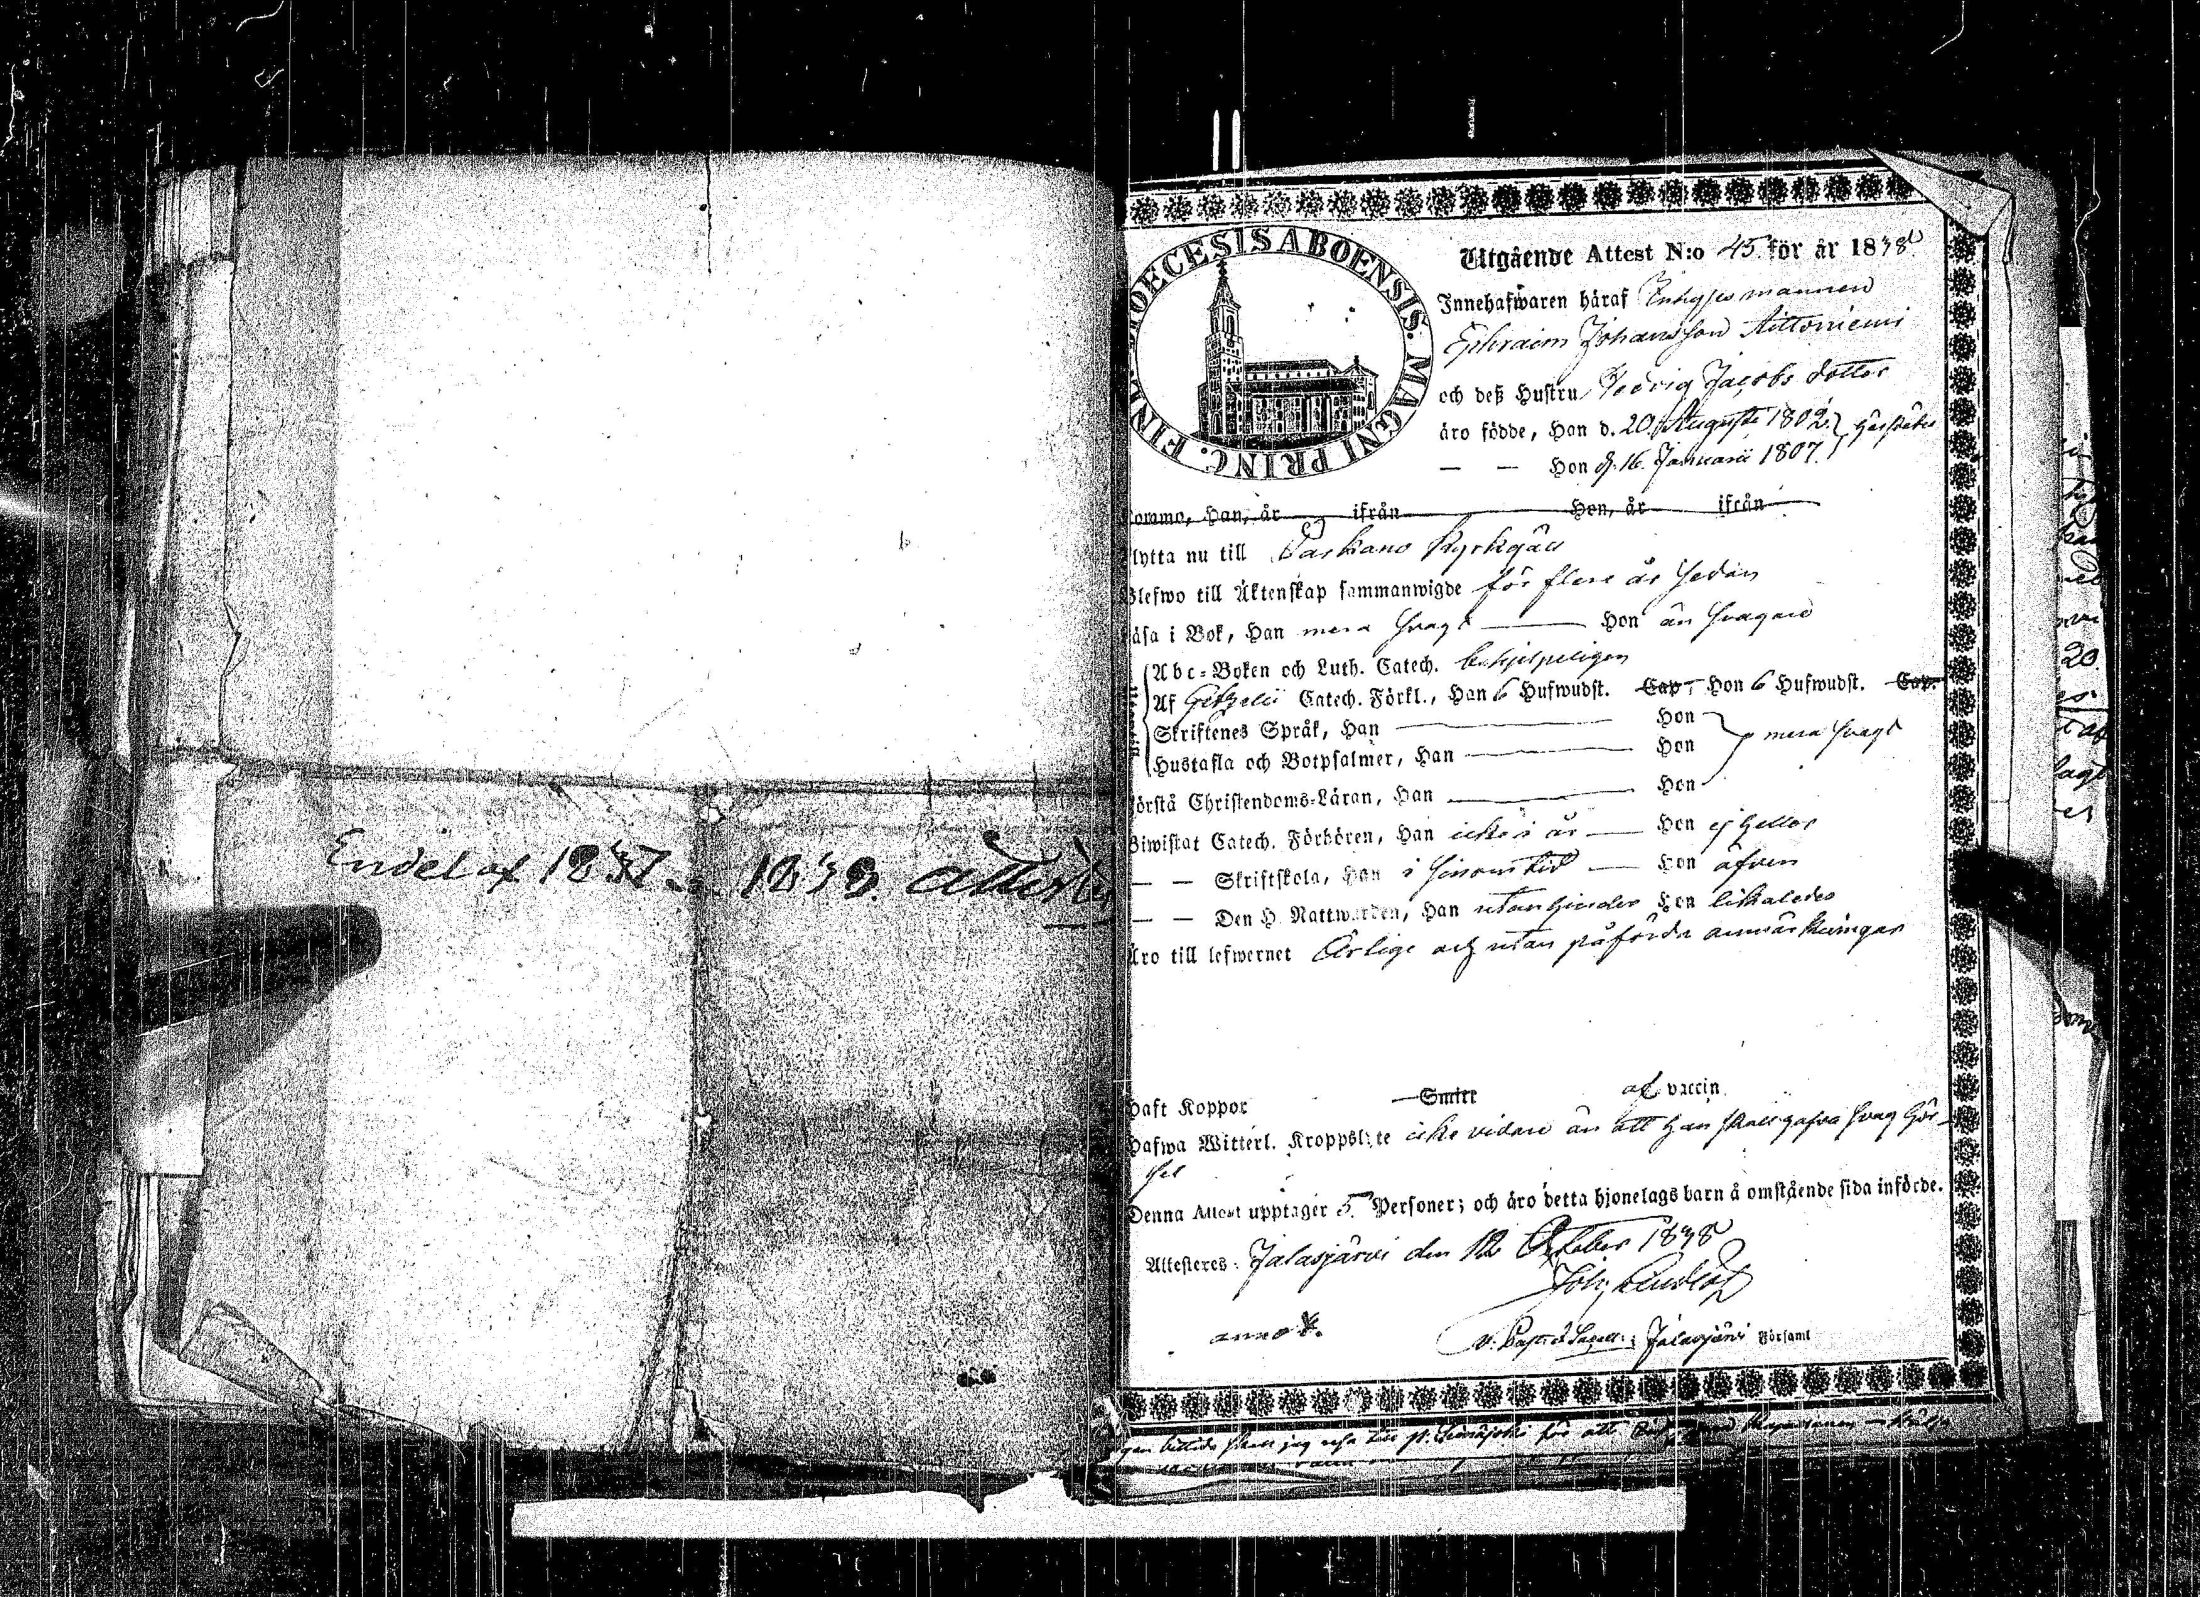 Endel af 1837 1838 attester
DIOECESIS ABOENSIS. MAGNI PRINC. FINL.
Utgående Attest N:o 45 för år 1838
Innehafwaren häraf Inhyses mannen
Ephraim Johansson Aittoniemi
och deß Hustru Hedvig Jacobs dotter
äro födde, Han d. 20 Augusti 1802 härstädes
— — Hon d. 16 Januarii 1807.
Kommo, Han, år ifrån Hon, år ifrån
Flytta nu till Parkano Kyrkogäll
Blefwo till Äktenskap sammanwigde för flere år sedan
Läsa i Bok, Han mera svagt — Hon än svagare
Abc-Boken och Luth. Catech. behjelpeligen
Af Getzelii Catech. Förkl., Han 6 Hufwudst. Cap. Hon 6 Hufwudst. Cap.
Skriftenes Språk, Han — Hon
Hustafla och Botpsalmer, Han — Hon mera svagt
Förstå Christendoms-Läran, Han — Hon
Biwistat Catech. Förhören, Han icke i år — Hon ej heller
— — Skriftskola, Han i sinom tid — Hon äfven
— — Den H. Nattwarden, Han utan hinder Hon likaledes
Äro till lefwernet Ärlige och utan påförda anmärkningar
Haft Koppor Smitt af vaccin
Hafwa Witterl. Kroppslyte icke vidare än att han skall hafva svag hör-
sel
Denna Attest upptager 5 Personer; och äro detta hjonelags barn å omstående sida införde.
Attesteras: Jalasjärvi den 12 October 1838
Joh. Lindlöf
v. Past. Jalasjärvi Församl